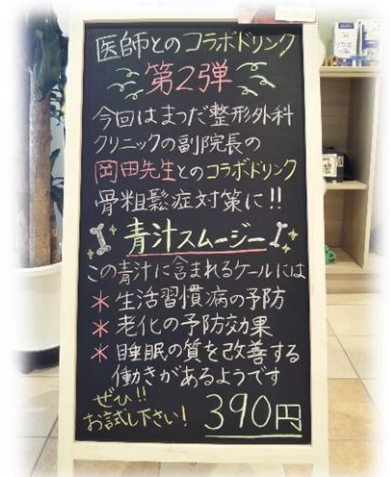 医師とのコラボドリンク
第2弾
今回はまつだ整形外科
クリニックの副院長の
岡田先生とのコラボドリンク
骨粗鬆症対策に!!
青汁スムージー
この青汁に含まれるケールには
*生活習慣病の予防
*老化の予防効果
*睡眠の質を改善する
働きがあるようです
ぜひ!!
お試し下さい!
390円